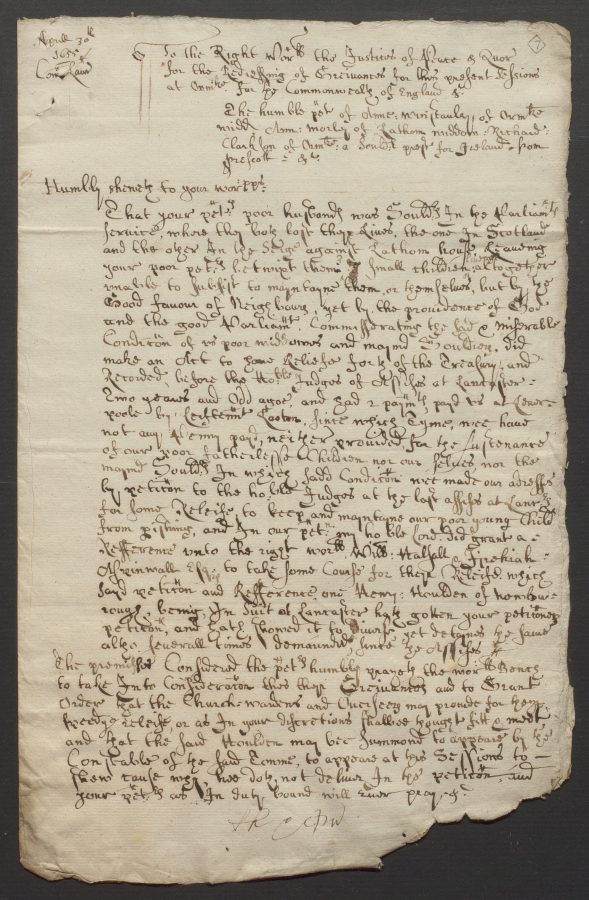 Aprill 30th
1655
Com Lanc
To the Right Worspll the Justices of Peace & Quor
for the Redressing of Greivances for this present Sessions
at Ormsk: for the Commonwealth of England &c
The humble pet of Anne: Winstanly of Ormsk
widd Ann: Morly of Lathom widdow: Richard:
Clarkson of Ormsk: a Sould prest for Ireland from
Prescott &c
Humbly sheweth to your worpps
That your petrs poor husbands was Souldrs In the Parliamts
service, where they both lost there lives, the one In Scotland
and the other In the Seige against Lathom house Leaveing
your poor petrs betwixt them 7 small children altogether
unable to subsist to maintaine them or themselves, but by the
Good favour of Neighbours, yet by the providence of God
and the good Parliamt Commisserating the sad & miserable
Condicon of us poor widdowes and maymd Souldiers, did
make an Act to have Releife forth of the Treasury, and
Recorded before the Hoble Judges of Assises at Lancaster
Two yeares and Odd agoe, and had 2 paymts payd us at Lever
poole by Leiftennt, since which Tyme, wee have
not any Penny payd, neither provided for the sustenance
of our poor fatherlesse Children nor our selves, nor the
maymd Souldr In which sadd Condicon wee made our adresses
by peticon to the hoble Judges at the last assises at Lancr
for some Releife, to keep and maintaine our poor young Childr
from pishing, and In our petn my hoble Lord did grant a
Refference unto the right worll Will: Halsall & Jerehiah
Aspinwall Esqrs to take some Course for there Releife which
said peticon and Refference, one Henry: Houlden of Newbow
rough, being In suit at Lancaster hath gotten your petitioners
peticon, and hath showed it to diverse yet detaines the same
altho severall times demaunded since the Assises
The premisses Considered the petrs humbly prayeth the worll Bench
to take Into Consideracon this their Greivances and to Grant
Order that the Church wardens and Overseers may provide for there
speedy releife, or as In your discretions shalbee thought fitt & meet
and that the said Houlden may bee Summond to appeare by the
Constable of the said Towne, to appeare at this Sessions to
shew cause why hee doth not deliver In the peticon, and
your petrs as In duty bound will ever pray &c